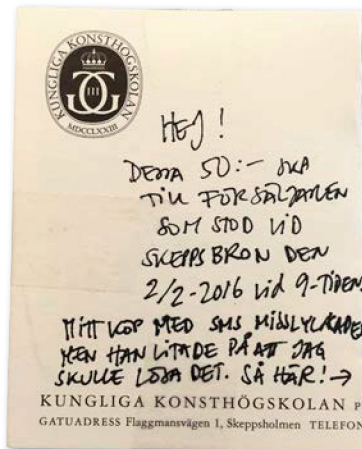 KUNGLIGA KONSTHÖGSKOLAN
MDCCLXXIII
HEJ!
DESSA 50:- SKA
TILL FÖRSÄLJAREN
SOM STOD VID
SKEPPSBRON DEN
2/2-2016 vid 9-TIDEN.
MITT KÖP MED SMS MISSLYCKADES
MEN HAN LITADE PÅ ATT JAG
SKULLE LÖSA DET. SÅ HÄR! →
KUNGLIGA KONSTHÖGSKOLAN P
GATUADRESS Flaggmansvägen 1, Skeppsholmen TELEFON